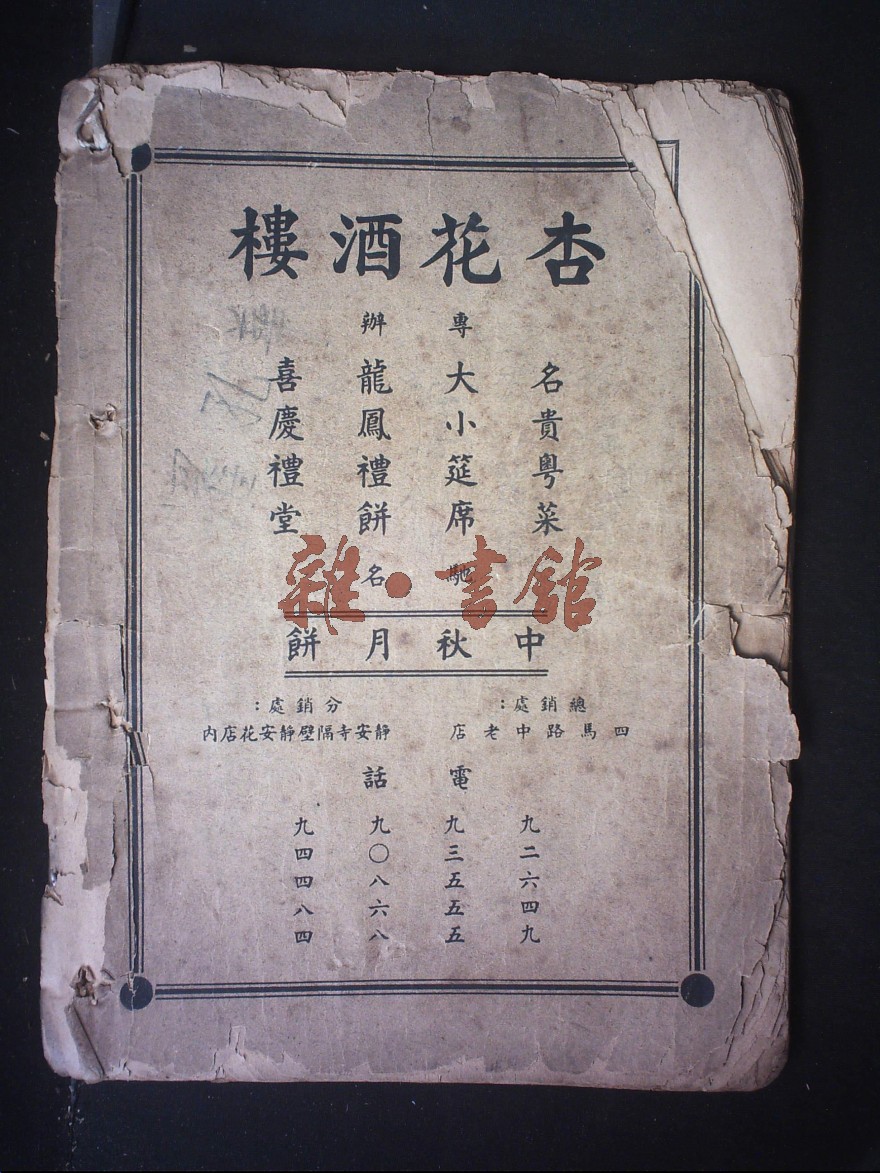 杏花酒樓
專辦
名貴粵菜
大小筵席
龍鳳禮餅
喜慶禮堂
馳名
中秋月餅
總銷處：
四馬路中老店
分銷處：
靜安寺隔壁靜安花店內
電話
九二六四九
九三五五五
九〇八六八
九四四八四
雜·書館